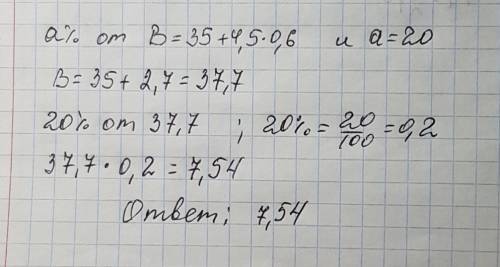 a% от B=35+4,5·0,6 и a=20
B=35+2,7=37,7
20% от 37,7 ; 20%=20/100=0,2
37,7·0,2=7,54
Ответ: 7,54